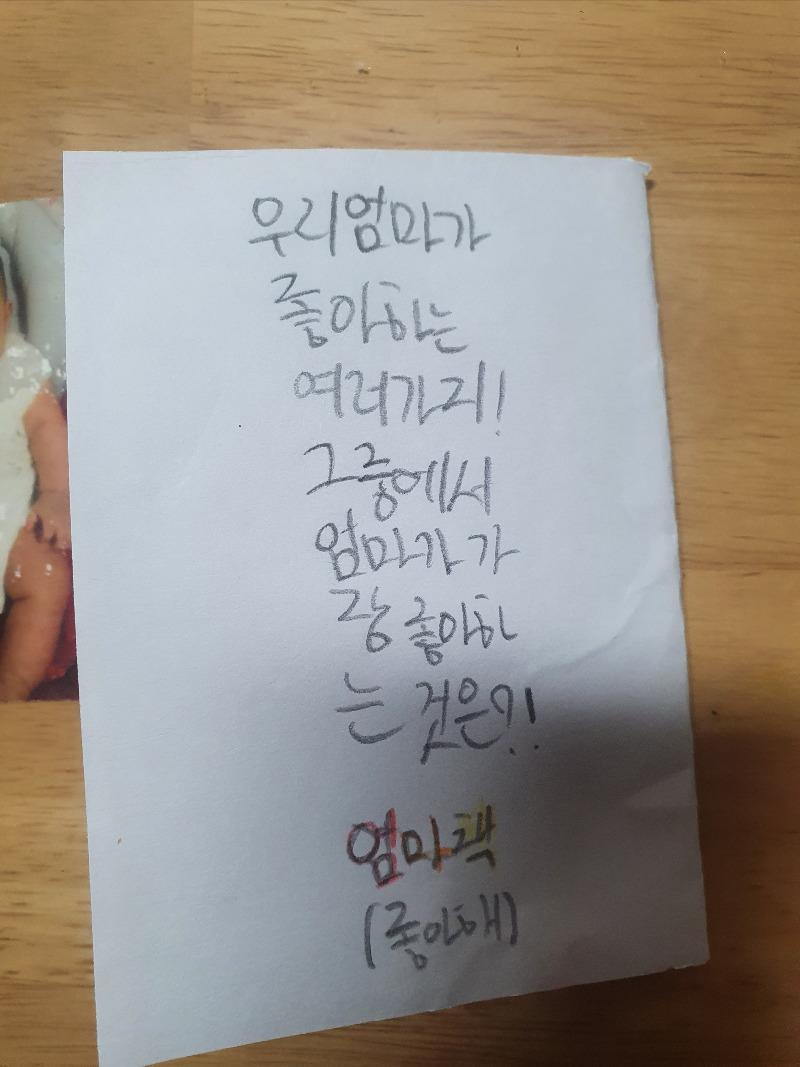 우리엄마가
좋아하는
여러가지!
그중에서
엄마가 가
장 좋아하
는 것은?!
엄마책
(좋아해)